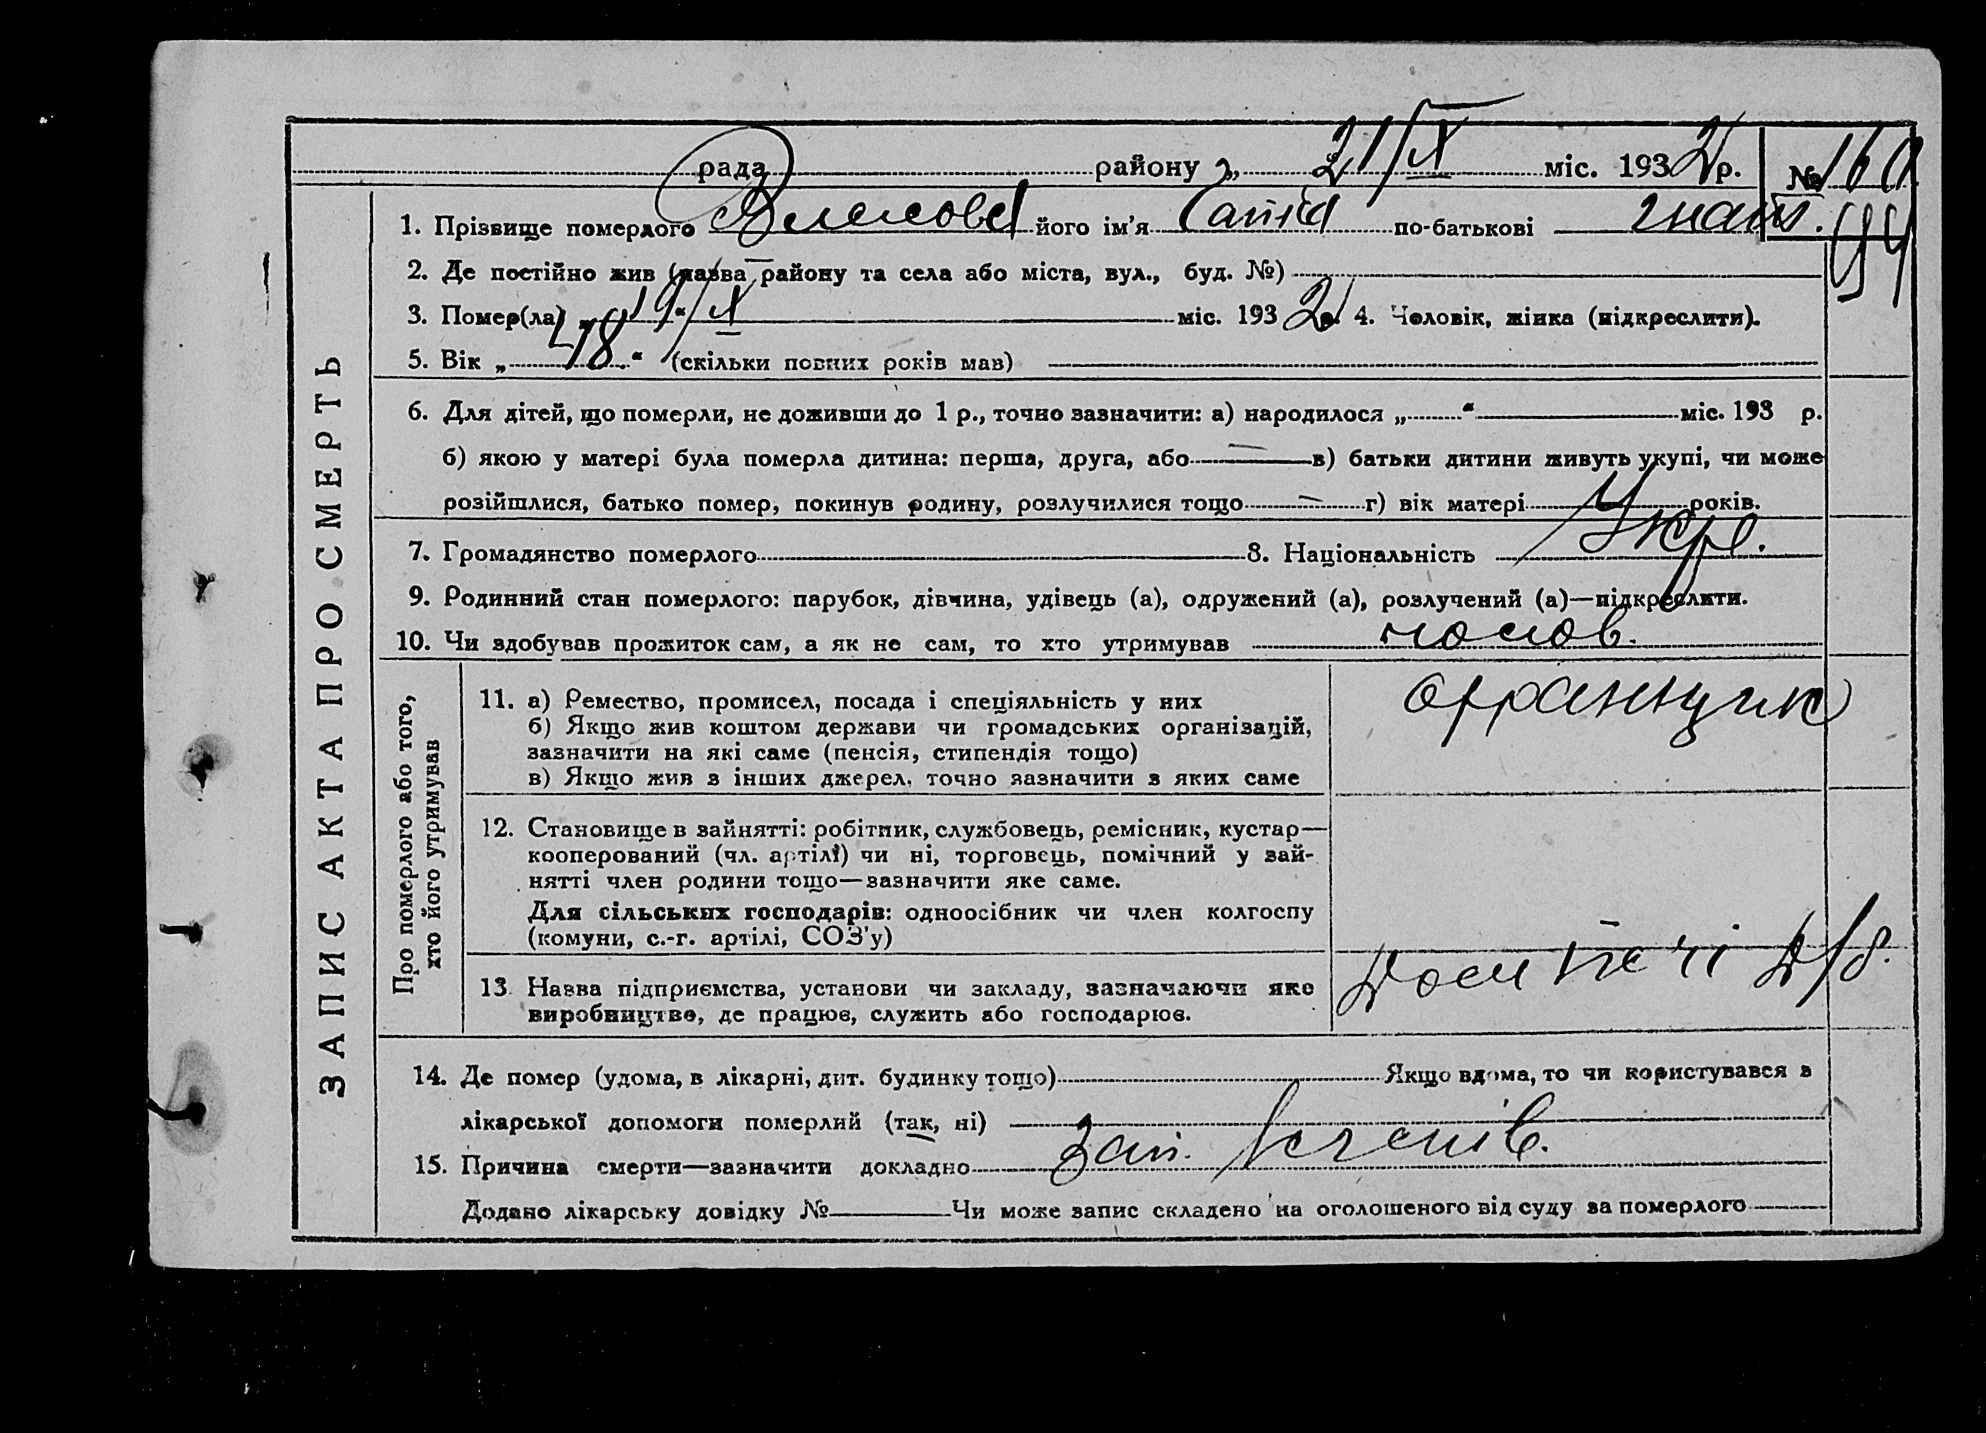 рада району „ 21/IX міс. 1932 р. № 160
1. Прізвище померлого його ім'я по-батькові Гнат. 94
2. Де постійно жив (назва району та села або міста, вул., буд. №)
3. Помер(ла) „ 19“/IX міс. 1932 р. 4. Чоловік, жінка (підкреслити).
5. Вік „ 48 “ (скільки повних років мав)
6. Для дітей, що померли, не доживши до 1 р., точно зазначити: а) народилося „ “ міс. 193 р.
б) якою у матері була померла дитина: перша, друга, або — в) батьки дитини живуть укупі, чи може
розійшлися, батько помер, покинув родину, розлучилися тощо — г) вік матері років.
7. Громадянство померлого 8. Національність Укр.
9. Родинний стан померлого: парубок, дівчина, удівець (а), одружений (а), розлучений (а)—підкреслити.
10. Чи здобував прожиток сам, а як не сам, то хто утримував чолов.
ЗАПИС АКТА ПРО СМЕРТЬ
Про померлого або того,
хто його утримував
11. а) Ремество, промисел, посада і спеціяльність у них
б) Якщо жив коштом держави чи громадських організацій,
зазначити на які саме (пенсія, стипендія тощо)
в) Якщо жив з інших джерел, точно зазначити з яких саме
12. Становище в зайнятті: робітник, службовець, ремісник, кустар—
кооперований (чл. артілі) чи ні, торговець, помічний у зай-
нятті член родини тощо—зазначити яке саме.
Для сільських господарів: одноосібник чи член колгоспу
(комуни, с.-г. артілі, СОЗ'у)
13. Назва підприємства, установи чи закладу, зазначаючи яке
виробництво, де працює, служить або господарює.
14. Де помер (удома, в лікарні, дит. будинку тощо) Якщо вдома, то чи користувався з
лікарської допомоги померлий (так, ні)
15. Причина смерти—зазначити докладно зап.
Додано лікарську довідку № Чи може запис складено на оголошеного від суду за померлого